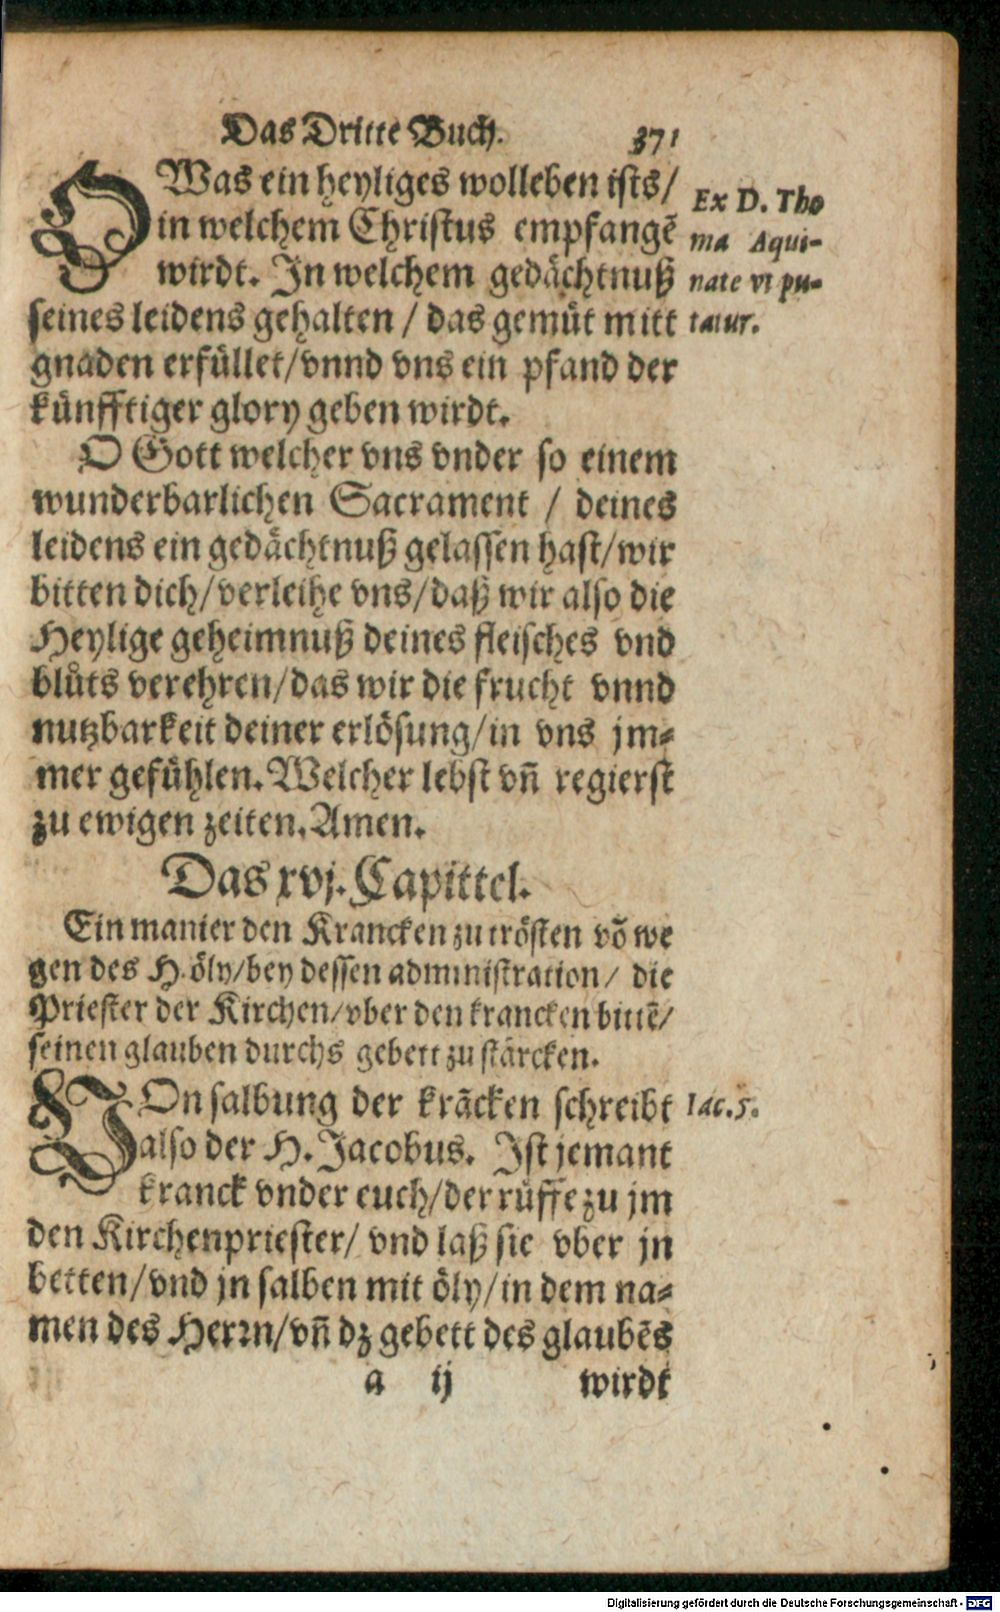 Das Dritte Buch. 371
OWas ein heyliges wolleben ists/
in welchem Christus empfangē
wirdt. In welchem gedächtnuß
seines leidens gehalten / das gemüt mitt
gnaden erfüllet/vnnd vns ein pfand der
künfftiger glory geben wirdt.
Ex D. Tho
ma Aqui-
nate vt pu-
tatur.
O Gott welcher vns vnder so einem
wunderbarlichen Sacrament / deines
leidens ein gedächtnuß gelassen hast/wir
bitten dich/verleihe vns/daß wir also die
Heylige geheimnuß deines fleisches vnd
blůts verehren/das wir die frucht vnnd
nutzbarkeit deiner erlösung/in vns jm-
mer gefühlen. Welcher lebst vñ regierst
zu ewigen zeiten. Amen.
Das xvj. Capittel.
Ein manier den Krancken zu trösten võ we
gen des H. öly/bey dessen administration/ die
Priester der Kirchen/vber den krancken bittē/
seinen glauben durchs gebett zu stärcken.
VOn salbung der krãcken schreibt
also der H. Jacobus. Ist jemant
kranck vnder euch/der rüffe zu jm
den Kirchenpriester/ vnd laß sie vber jn
betten/vnd jn salben mit öly/in dem na-
men des Herrn/vñ dz gebett des glaubēs
Iac. 5.
a ij wirdt
Digitalisierung gefördert durch die Deutsche Forschungsgemeinschaft - DFG